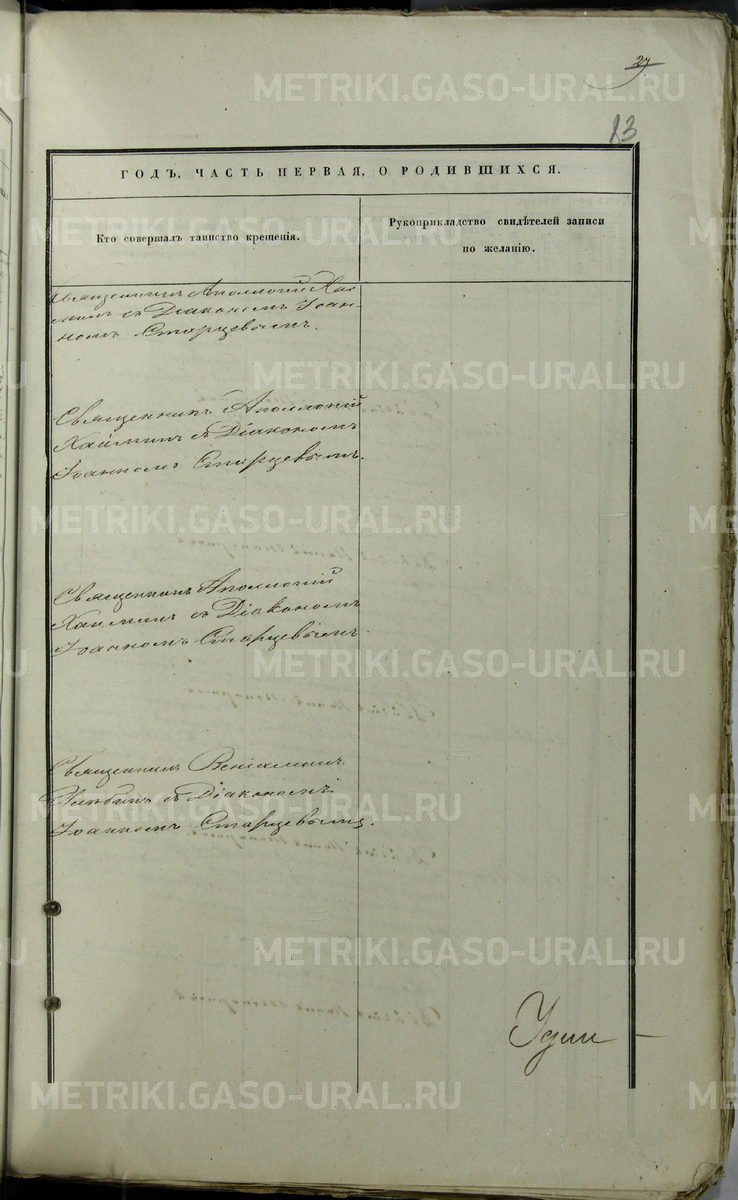 27
13
ГОДЪ, ЧАСТЬ ПЕРВАЯ, О РОДИВШИХСЯ.
Кто совершалъ таинство крещенія.
Рукоприкладство свидѣтелей записи
по желанію.
Священникъ Аполлоній Хай-
минъ съ Діакономъ Іоан-
номъ Старцевымъ.
Священникъ Аполлоній
Хайминъ съ Діакономъ
Іоанномъ Старцевымъ.
Священникъ Аполлоній
Хайминъ съ Діакономъ
Іоанномъ Старцевымъ
Священникъ Веніаминъ
съ Діакономъ
Іоанномъ Старцевымъ.
METRIKI.GASO-URAL.RU